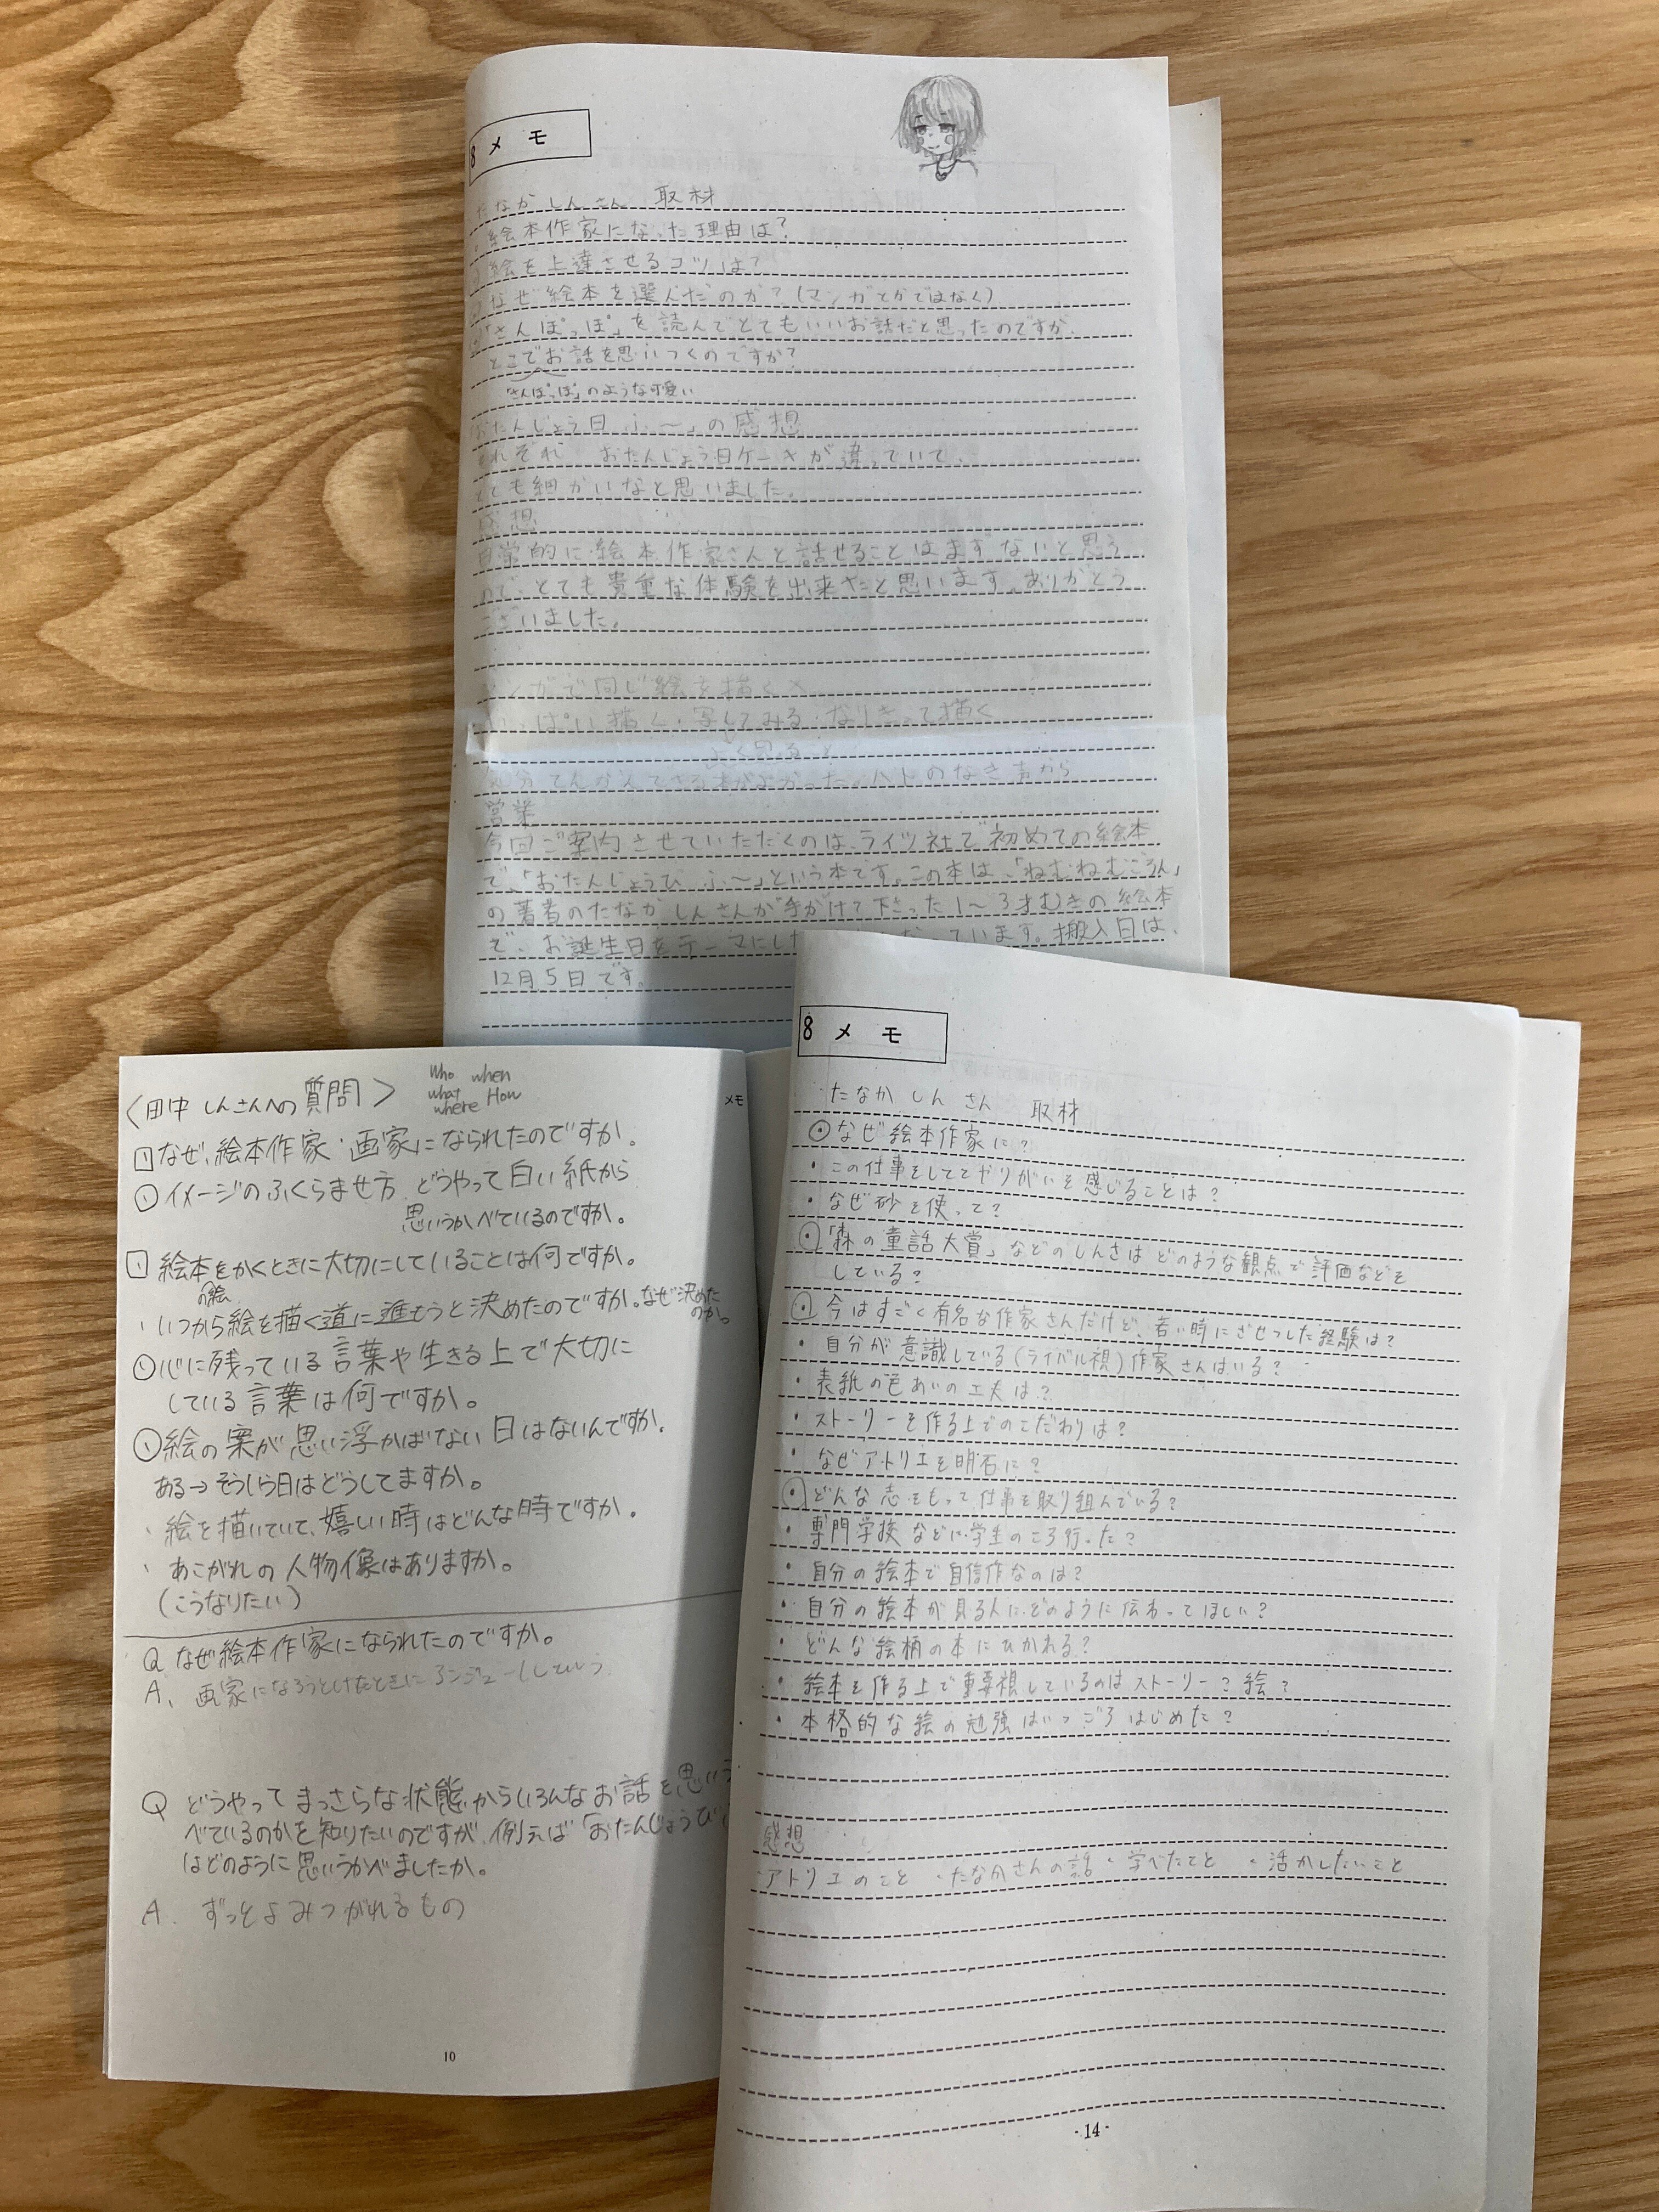 8 メモ
たなか しん さん 取材
絵本作家になった理由は?
絵を上達させるコツは?
なぜ絵本を選んだのか?(マンガとかではなく)
「さんぽっぽ」を読んでとてもいいお話だと思ったのですが、
どこでお話を思いつくのですか?
「さんぽっぽ」のような可愛い
「おたんじょう日 ふ〜」の感想
それぞれ おたんじょう日ケーキが違っていて、
とても細かいなと思いました。
感想
日常的に絵本作家さんと話せることはまずないと思う
ので、とても貴重な体験を出来たと思います。ありがとう
ございました。
マンガで同じ絵を描く×
いっぱい描く・写してみる・なりきって描く
よく見ること
本がよかった。ハトのなき声から
営業
今回ご案内させていただくのは、ライツ社で初めての絵本
で、「おたんじょうび ふ〜」という本です。この本は、「ねむねむごろん」
の著者のたなか しんさんが手がけて下さった1〜3才むきの絵本
で、お誕生日をテーマにし ています。搬入日は、
12月5日です。
〈田中 しんさんへの質問〉
Who when
what How
where
なぜ、絵本作家・画家になられたのですか。
イメージのふくらませ方 どうやって白い紙から
思いうかべているのですか。
絵本をかくときに大切にしていることは何ですか。
の絵
いつから絵を描く道に進もうと決めたのですか。なぜ決めた
のか。
心に残っている言葉や生きる上で大切に
している言葉は何ですか。
絵の案が思い浮かばない日はないんですか。
ある→そういう日はどうしてますか。
絵を描いていて、嬉しい時はどんな時ですか。
あこがれの人物像はありますか。
(こうなりたい)
Q なぜ絵本作家になられたのですか。
A. 画家になろうと
Q どうやってまっさらな状態からいろんなお話を思いう
べているのかを知りたいのですが、例えば「おたんじょうび
はどのように思いうかべましたか。
A. ずっとよみつがれるもの
10
メモ
8 メモ
たなか しん さん 取材
なぜ絵本作家に?
・この仕事をしててやりがいを感じることは?
・なぜ砂を使って?
「森の童話大賞」などのしんさはどのような観点で評価などを
している?
今はすごく有名な作家さんだけど、若い時にざせつした経験は?
・自分が意識している(ライバル視)作家さんはいる?
・表紙の色あいの工夫は?
・ストーリーを作る上でのこだわりは?
・なぜアトリエを明石に?
どんな志をもって仕事を取り組んでいる?
・専門学校などに学生のころ行った?
・自分の絵本で自信作なのは?
・自分の絵本が見る人にどのように伝わってほしい?
・どんな絵柄の本にひかれる?
・絵本を作る上で重要視しているのはストーリー?絵?
・本格的な絵の勉強はいつごろはじめた?
感想
・アトリエのこと ・たなかさんの話 ・学べたこと ・活かしたいこと
-14-